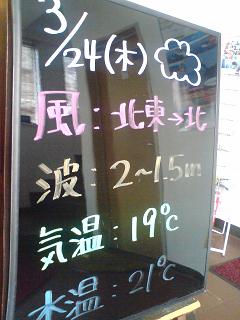 3/24(木)
風:北東→北
波:2~1.5m
気温:19℃
水温:21℃